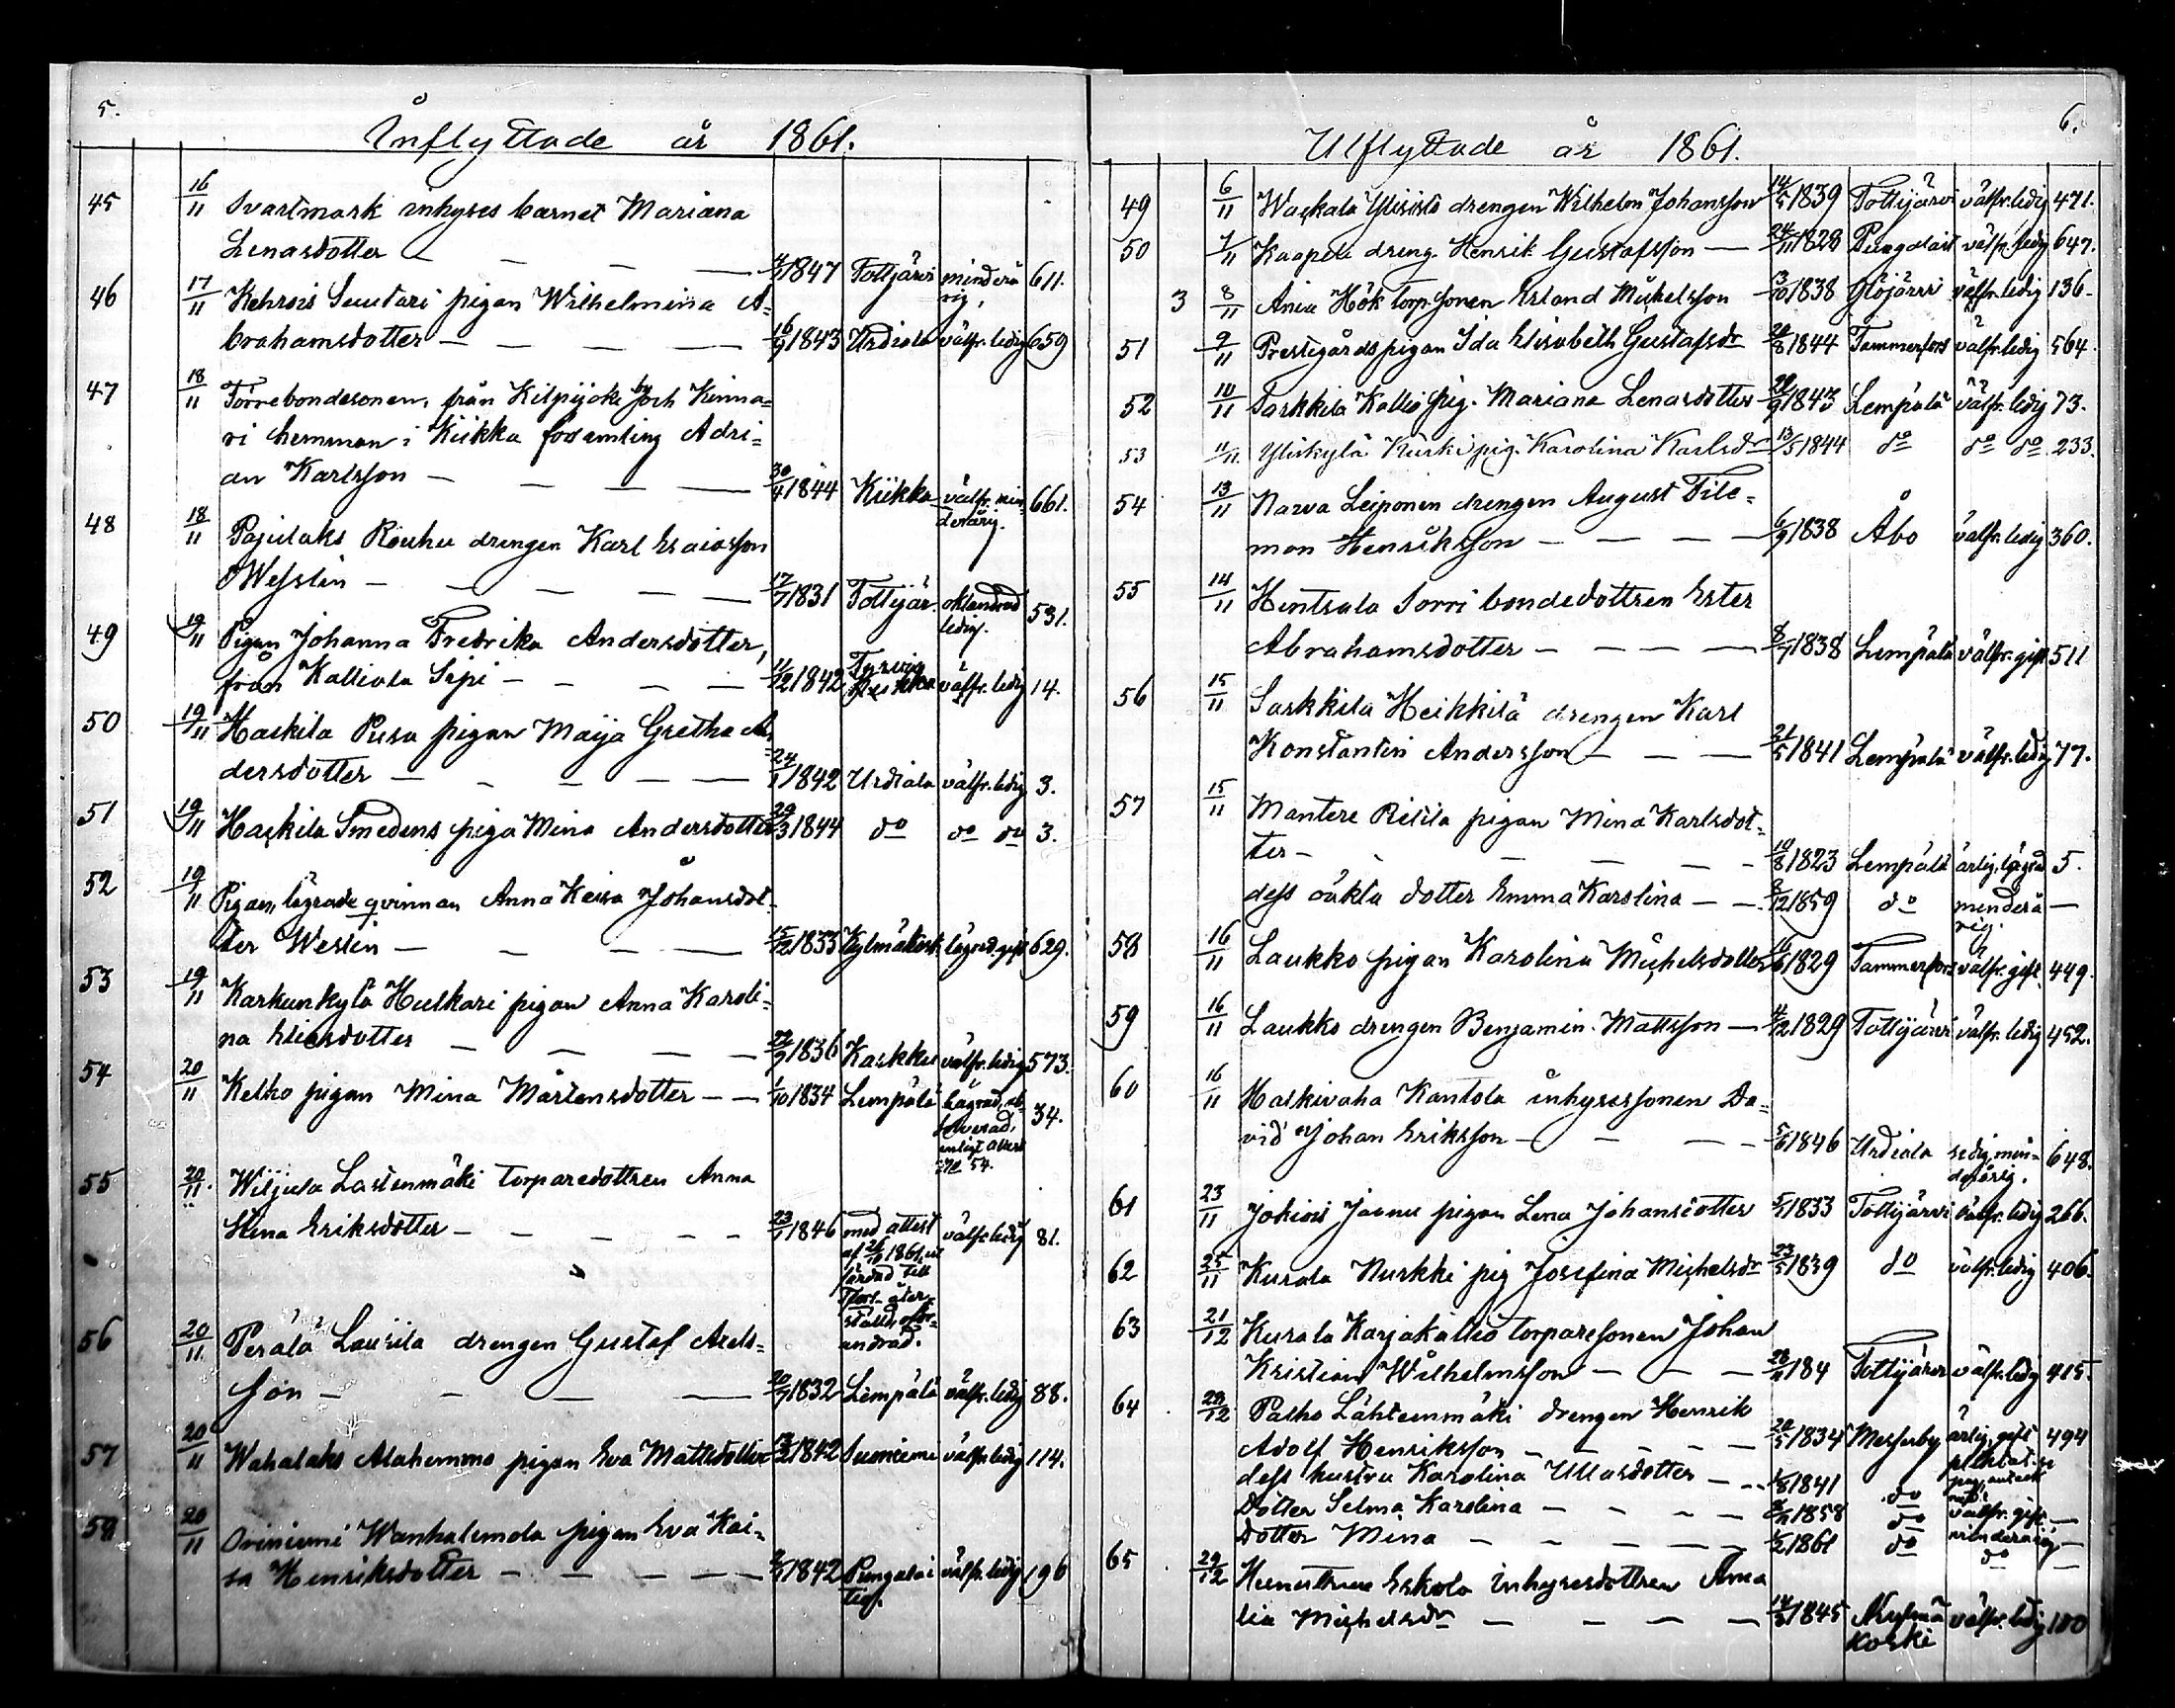 5.
Inflyttade år 1861.
45 16/11 Svartmark inhyses barnet Mariana
Lenasdotter — — — — 1847 Tottijärvi minderå 611.
rig.
46 17/11 Kehrois Suutari pigan Wilhelmina A=
brahamsdotter — — — 16/9 1843 Urdiala välfr. ledig 659
47 18/11 Torrebondesonen, från Kilpijoki by och Kinna=
ri hemman i Kiikka församling Adri=
an Karlsson — — — — 30/4 1844 Kiikka välfr. min= 661.
derårig.
48 18/11 Pajulaks Rouhu drengen Karl Esaiasson
Wesslin — — — — 17/7 1831 Tottijär. oklandrad 531.
ledig.
49 19/11 Pigan Johanna Fredrika Andersdotter, Tyrvis
från Kalliala Sipi — — — 11/12 1842 välfr. ledig 14.
50 19/11 Haskila Pusa pigan Maija Gretha An=
dersdotter — — — — 24/1 1842 Urdiala välfr. ledig 3.
51 19/11 Haskila Smedens piga Mina Andersdotter 29/3 1844 do do do 3.
52 19/11 Pigan, lägrade qvinnan Anna Kaisa Johansdot=
ter Westin — — — 15/12 1833 Kylmäkosk. lägrad. gift 629.
53 19/11 Karkunkylä Hulkari pigan Anna Karoli=
na Eliasdotter — — — 22/9 1836 Karkku välfr. ledig 573.
54 20/11 Kelho pigan Mina Mårtensdotter — — 1/10 1834 Lempälä lägrad, ab= 34.
solverad,
enligt attest
No 54.
55 20/11 Wiljula Lastenmäki torparedottren Anna
Stina Eriksdotter — — — — 23/1 1846 med attest välfr. ledig 81.
af 26/10 1861, ut
färdad till
Tfors. åter=
ställd, oför=
ändrad.
56 20/11 Perälä Laurila drengen Gustaf Axels=
son — — — — 20/7 1832 Lempälä välfr. ledig 88.
57 20/11 Wahalaks Alahemmo pigan Eva Mattsdotter 1842 Suoniemi välfr. ledig 114.
58 20/11 Oriniemi Wanhalemola pigan Eva Kai=
sa Henriksdotter — — — — 1842 Pungalai välfr. ledig 196
tio.
6.
Utflyttade år 1861.
49 6/11 Waskala Ylisisto drengen Wilhelm Johansson 14/5 1839 Tottijärvi välfr. ledig 471.
50 7/11 Kaapela dreng. Henrik Gustafsson — 24/11 1828 Pungalait välfr. ledig 647.
3 8/11 Ania Hök torp. sonen Erland Mickelsson 3/10 1838 Ylöjärvi välfr. ledig 136.
51 9/11 Prestegårds pigan Ida Elisabeth Gustafsdr 28/8 1844 Tammerfors välfr. ledig 564.
52 10/11 Sarkkila Kallio pig. Mariana Lenasdotter 29/9 1843 Lempälä välfr. ledig 73.
53 11/11 Yliskylä Kurki pig. Karolina Karlsdr 13/5 1844 do do do 233.
54 13/11 Narva Leiponen drengen August File=
mon Henriksson — — — — 6/9 1838 Åbo välfr. ledig 360.
55 14/11 Hentsala Sorri bondedottren Ester
Abrahamsdotter — — — — 8/7 1838 Lempälä välfr. gift 511
56 15/11 Sarkkila Heikkilä drengen Karl
Konstantin Andersson — — — 21/5 1841 Lempälä välfr. ledig 77.
57 15/11 Mantere Pietilä pigan Mina Karlsdot=
ter — — — — — 10/8 1823 Lempälä ärlig, lägrad 5.
dess oäkta dotter Emma Karolina — — 8/12 1859 do minderå —
rig.
58 16/11 Laukko pigan Karolina Michelsdotter 1829 Tammerfors välfr. gift. 449.
59 16/11 Laukko drengen Benjamin Mattsson — 4/12 1829 Tottijärvi välfr. ledig 452.
60 16/11 Haskivaha Kantola inhysessonen Da=
vid Johan Eriksson — — — 5/6 1846 Urdiala ledig, min= 648.
derårig.
61 23/11 Jokiois Jaanu pigan Lena Johansdotter 5/5 1833 Tottijärvi välfr. ledig 266.
62 25/11 Kurala Nurkki pig Josefina Michelsdr 23/5 1839 do välfr. ledig 406.
63 21/12 Kurala Karjakallio torparesonen Johan
Kristian Wilhelmsson — — — 184 Tottijärvi välfr. ledig 415.
64 28/12 Palho Lähteenmäki drengen Henrik
Adolf Henriksson — — — — 20/5 1834 Messuby ärlig, gift 494
dess hustru Karolina Ullasdotter — — 1841 do välfr. gift —
Dotter Selma Karolina — — — — 1858 do minderårig —
Dotter Mina — — — — — 1861 do do —
65 29/12 Eskola inhysesdottren Ama
lia Michelsdr — — — — 14/3 1845 Kylmä välfr. ledig 100
koski